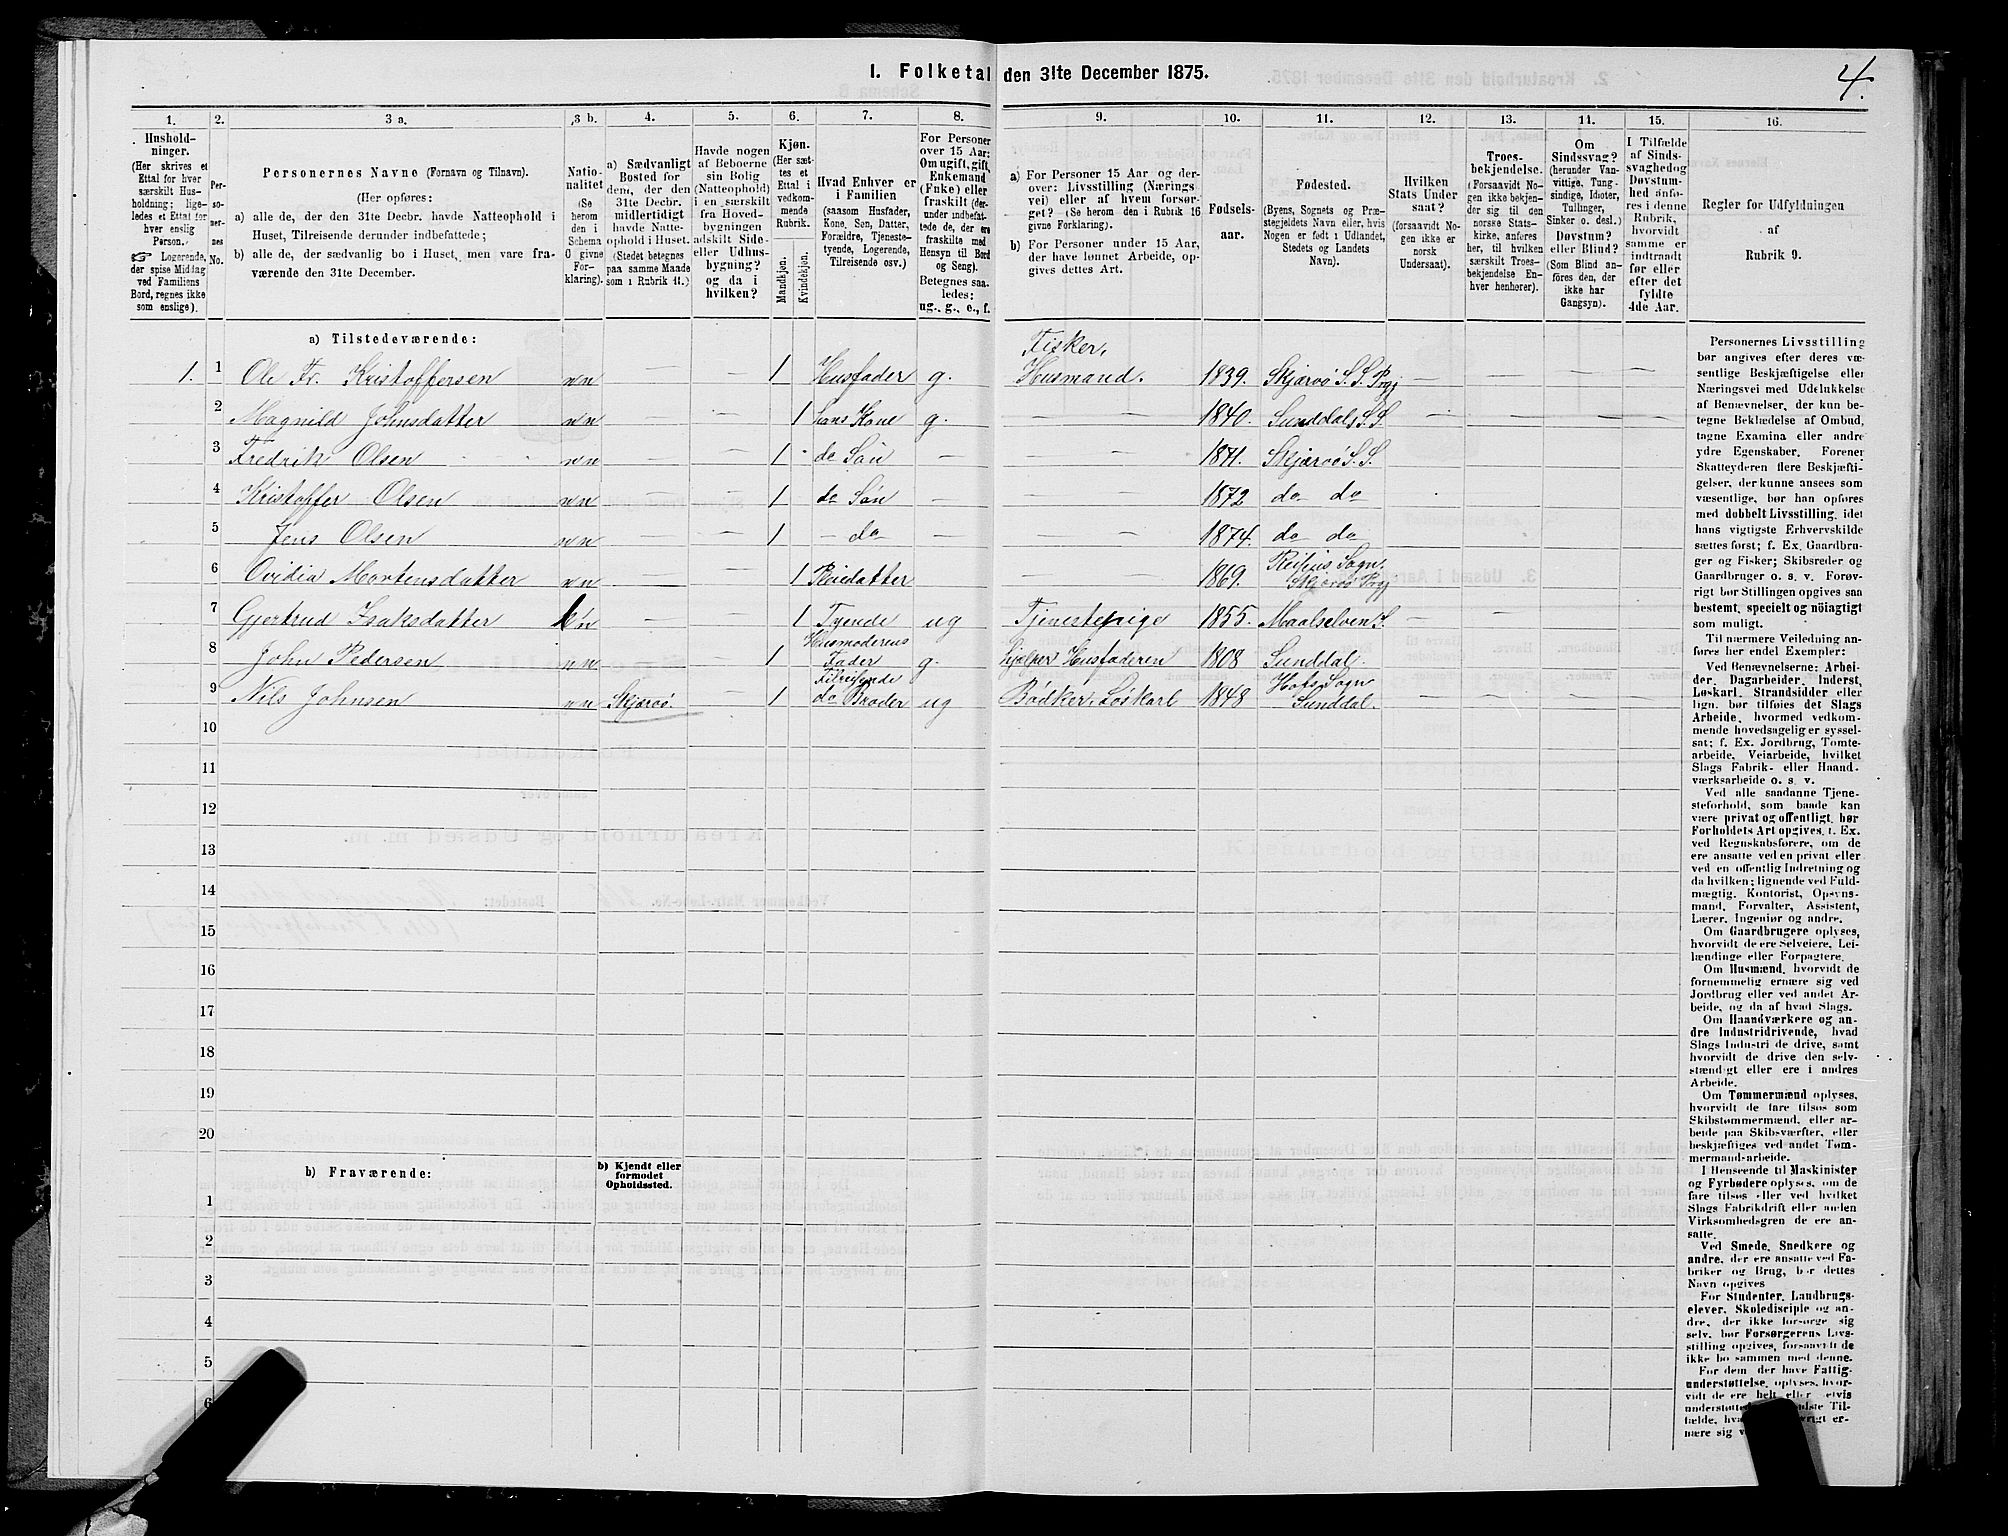 I. Folketal den 31te December 1875.
4.
1. 2. 3 a. 3 b. 4. 5. 6. 7. 8. 9. 10. 11. 12. 13. 11. 15. 16.
Husholdninger.
(Her skrives et
Ettal for hver
særskilt Husholdning;
ligeledes et Ettal for
hver enslig
Person.
☞ Logerende,
der spise Middag
ved Familiens
Bord, regnes ikke
som enslige).
Personernes No.
Personernes Navne (Fornavn og Tilnavn).
(Her opføres:
a) alle de, der den 31te Decbr. havde Natteophold i
Huset, Tilreisende derunder indbefattede;
b) alle de, der sædvanlig bo i Huset, men vare fraværende
den 31te December.
Nationalitet
(Se
herom
den i
Schema
O givne
Forklaring).
a) Sædvanligt
Bosted for
dem, der den
31te Decbr.
midlertidigt
havde Natteophold
i Huset.
(Stedet betegnes
paa samme Maade
som i Rubrik 11.)
Havde nogen
af Beboerne
sin Bolig
(Natteophold)
i en særskilt
fra Hovedbygningen
adskilt Side-
eller Udhusbygning?
og da i
hvilken?
Kjøn.
(Her sættes
et
Ettal i
vedkommende
Rubrik.
Mandkjøn.
Kvindekjøn.
Hvad Enhver er
i Familien
(saasom Husfader,
Kone, Søn, Datter,
Forældre, Tjenestetyende,
Logerende,
Tilreisende osv.)
For Personer
over 15 Aar:
Om ugift, gift,
Enkemand
(Enke) eller
fraskilt (derunder
indbefattede
de, der ere
fraskilte med
Hensyn til Bord
og Seng).
Betegnes saaledes:
ug., g., e., f.
a) For Personer 15 Aar og derover:
Livsstilling (Næringsvei)
eller af hvem forsørget?
(Se herom den i Rubrik 16
givne Forklaring).
b) For Personer under 15 Aar,
der have lønnet Arbeide, opgives
dettes Art.
Fødselsaar.
Fødested.
(Byens, Sognets og Præstegjeldets
Navn eller, hvis
Nogen er født i Udlandet,
Stedets og Landets
Navn).
Hvilken
Stats Undersaat?
(forsaavidt Nogen
ikke er
norsk
Undersaat).
Troesbekjendelse.
(Forsaavidt Nogen
ikke bekjender
sig til den
norske Statskirke,
anføres
her, til hvilken
særskilt Troesbekjendelse
Enhver
henhører).
Om
Sindssvag?
(herunder Vanvittige,
Tungsindige,
Idioter,
Tullinger,
Sinker o. desl.)
Døvstum?
eller Blind?
(Som Blind anføres
den, der
ikke har
Gangsyn).
I Tilfælde
af Sindssvaghed
og
Døvstumhed
anføres
i denne
Rubrik,
hvorvidt
samme er
indtraadt
før eller
efter det
fyldte
4de Aar.
Regler for Udfyldningen
af
Rubrik 9.
a) Tilstedeværende:
1. 1 Ole Fr. Kristoffersen nn — 1 Husfader g. Fisker, Husmand. 1839. Skjærvö S. S. Prgj — —
2 Magnild Johnsdatter nn — — 1 hans Kone g. — — 1840. Sunddals S. — —
3 Fredrik Olsen nn — — 1 do Sön — — — 1871. Skjærvö S. S.
4 Kristoffer Olsen nn — — 1 do Sön — — — 1872 do do
5 Jens Olsen nn — — 1 — do — — — 1874. do do
6 Ovidia Mortensdatter nn — — 1 Pleiedatter — — 1869. Reisens Sogn. Skjærvö Prgj
7 Gjertrud Isaksdatter — — 1 Tyende ug Tjenestepige 1855. Maalselven S. — —
8 John Pedersen nn — — 1 Husmoderens Fader g. hjelper Husfaderen 1808 Sunddal.
9 Nils Johnsen nn Skjærvö. — 1 Tilreisende do Broder ug Bödker, Löskarl 1848 Hofs Sogn Sunddal.
10
11
12
13
14
15
16
17
18
19
20
b) Fraværende:
b) Kjendt eller
formodet
Opholdssted.
1
2
3
4
5
6
Personernes Livsstilling
bør angives efter deres væsentlige
Beskjæftigelse eller
Næringsvei med Udelukkelse
af Benævnelser, der kun betegne
Beklædelse af Ombud,
tagne Examina eller andre
ydre Egenskaber. Forener
Skatteyderen flere Beskjæftigelser,
der kunne ansees som
væsentlige, bør han opføres
med dobbelt Livsstilling, idet
hans vigtigste Erhvervskilde
sættes først; f. Ex. Gaardbruger
og Fisker; Skibsreder og
Gaardbruger o. s. v. Forøvrigt
bør Stillingen opgives saa
bestemt, specielt og nöiagtigt
som muligt.
Til nærmere Veiledning anføres
her endel Exempler:
Ved Benævnelserne: Arbeider,
Dagarbeider, Inderst,
Løskarl, Strandsidder eller
lign. bør tilføies det Slags
Arbeide, hvormed vedkommende
hovedsagelig er sysselsat;
f. Ex. Jordbrug, Tomtearbeide,
Veiarbeide, hvilket
Slags Fabrik- eller Haandværksarbeide
o. s. v.
Ved alle saadanne Tjenesteforhold,
som baade kan
være privat og offentligt, bør
Forholdets Art opgives, t. Ex.
ved Regnskabsførere, om de
ere ansatte ved en privat eller
ved en offentlig Indretning og
da hvilken; lignende ved Fuldmægtig,
Kontorist, Opsynsmand,
Forvalter, Assistent,
Lærer, Ingeniør og andre.
Om Gaardbrugere oplyses,
hvorvidt de ere Selveiere, Leilændinge
eller Forpagtere.
Om Husmænd, hvorvidt de
fornemmelig ernære sig ved
Jordbrug eller ved andet Arbeide,
og da af hvad Slags.
Om Haandværkere og andre
Industridrivende, hvad
Slags Industri de drive, samt
hvorvidt de drive den selvstændigt
eller ere i andres
Arbeide.
Om Tømmermænd oplyses,
hvorvidt de fare tilsøs som
Skibstømmermænd, eller arbeide
paa Skibsværfter, eller
beskjæftiges ved andet Tømmermand-arbeide.
I Henseende til Maskinister
og Fyrbødere oplyses, om de
fare tilsøs eller ved hvilket
Slags Fabrikdrift eller anden
Virksomhedsgren de ere ansatte.
Ved Smede, Snedkere og
andre, der ere ansatte ved Fabriker
og Brug, bør dettes
Navn opgives
For Studenter, Landbrugselever,
Skoledisciple og andre,
der ikke forsørge sig
selv, bør Forsørgerens Livsstilling
opgives, forsaavidt de
ikke bo sammen med denne.
For dem, der have Fattigunderstøttelse,
oplyses, hvorvidt
de ere helt eller